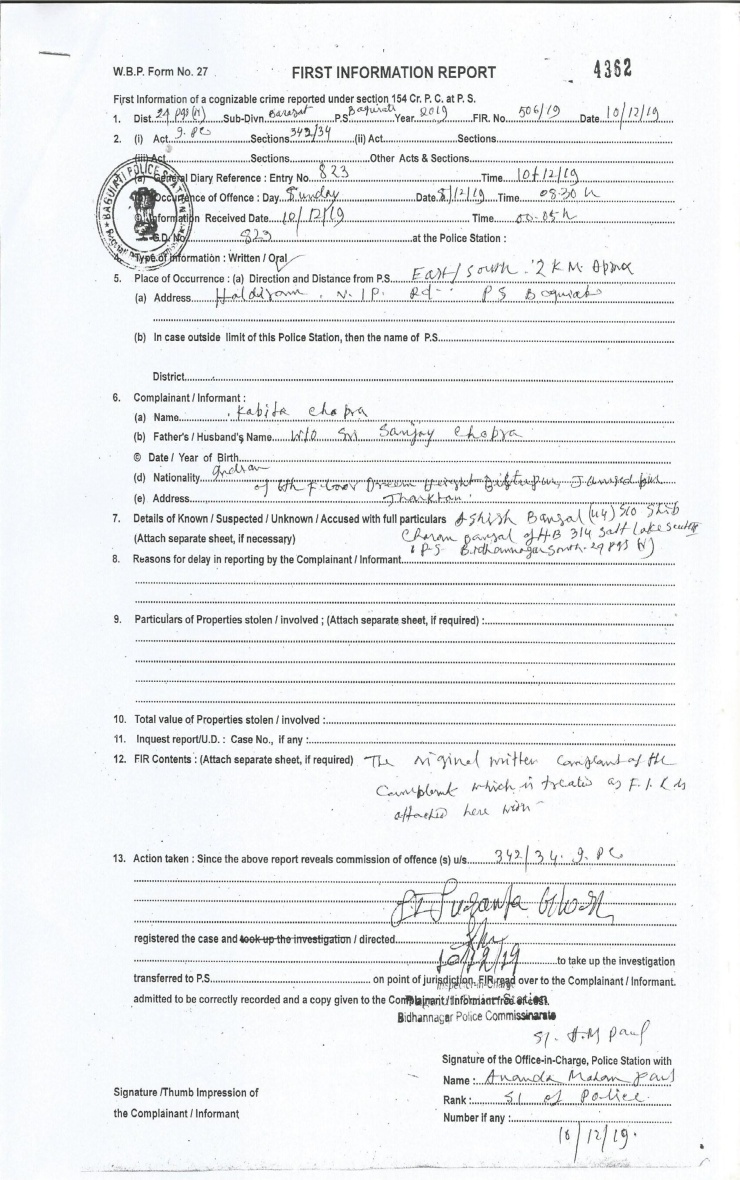 W.B.P. Form No. 27 FIRST INFORMATION REPORT 4362
First Information of a cognizable crime reported under section 154 Cr. P. C. at P. S.
1. Dist. 24 pgs (N) Sub-Divn. Barasat P.S Baguiati Year 2019 FIR. No. 506/19 Date 10/12/19
2. (i) Act I. PC Sections 342/34 (ii) Act Sections
(iii) Act Sections Other Acts & Sections
(a) General Diary Reference : Entry No. 823 Time 10/12/19
Occurrence of Offence : Day Sunday Date 8/12/19 Time 08:30 h
Information Received Date 10/12/19 Time 00.05 h
G.D. No. 823 at the Police Station :
BAGUIATI POLICE STATION
Type of Information : Written / Oral
5. Place of Occurrence : (a) Direction and Distance from P.S. East/South. 2 KM. Aprox
(a) Address Haldiram, V.I.P. Rd- PS Baguiati
(b) In case outside limit of this Police Station, then the name of P.S.
District
6. Complainant / Informant :
(a) Name Kabita Chopra
(b) Father's / Husband's Name W/O Sri Sanjay Chopra
© Date / Year of Birth
(d) Nationality Indian
of 6th Floor Dreem Height Bistupur, Jamsedpur
(e) Address Jharkhan
7. Details of Known / Suspected / Unknown / Accused with full particulars Ashish Bansal (44) S/O Shib
(Attach separate sheet, if necessary) Charan Bansal of HB 314 Salt Lake Sector
PS Bidhannagar South. 24 PGS (N)
8. Reasons for delay in reporting by the Complainant / Informant
9. Particulars of Properties stolen / involved ; (Attach separate sheet, if required) :
10. Total value of Properties stolen / involved :
11. Inquest report/U.D. : Case No., if any :
12. FIR Contents : (Attach separate sheet, if required) The original written complant of the
Complent which is treated as F.I.R is
attached here with
13. Action taken : Since the above report reveals commission of offence (s) u/s 342/34. I. PC
registered the case and took up the investigation / directed
10/12/19 to take up the investigation
transferred to P.S. on point of jurisdiction. FIR read over to the Complainant / Informant.
admitted to be correctly recorded and a copy given to the Complainant / Informant free of cost.
Bidhannagar Police Commissinarate
SI. A.M Paul
Signature of the Office-in-Charge, Police Station with
Name : Ananda Mohan Paul
Signature /Thumb Impression of Rank : SI of Police
the Complainant / Informant Number if any :
10/12/19.